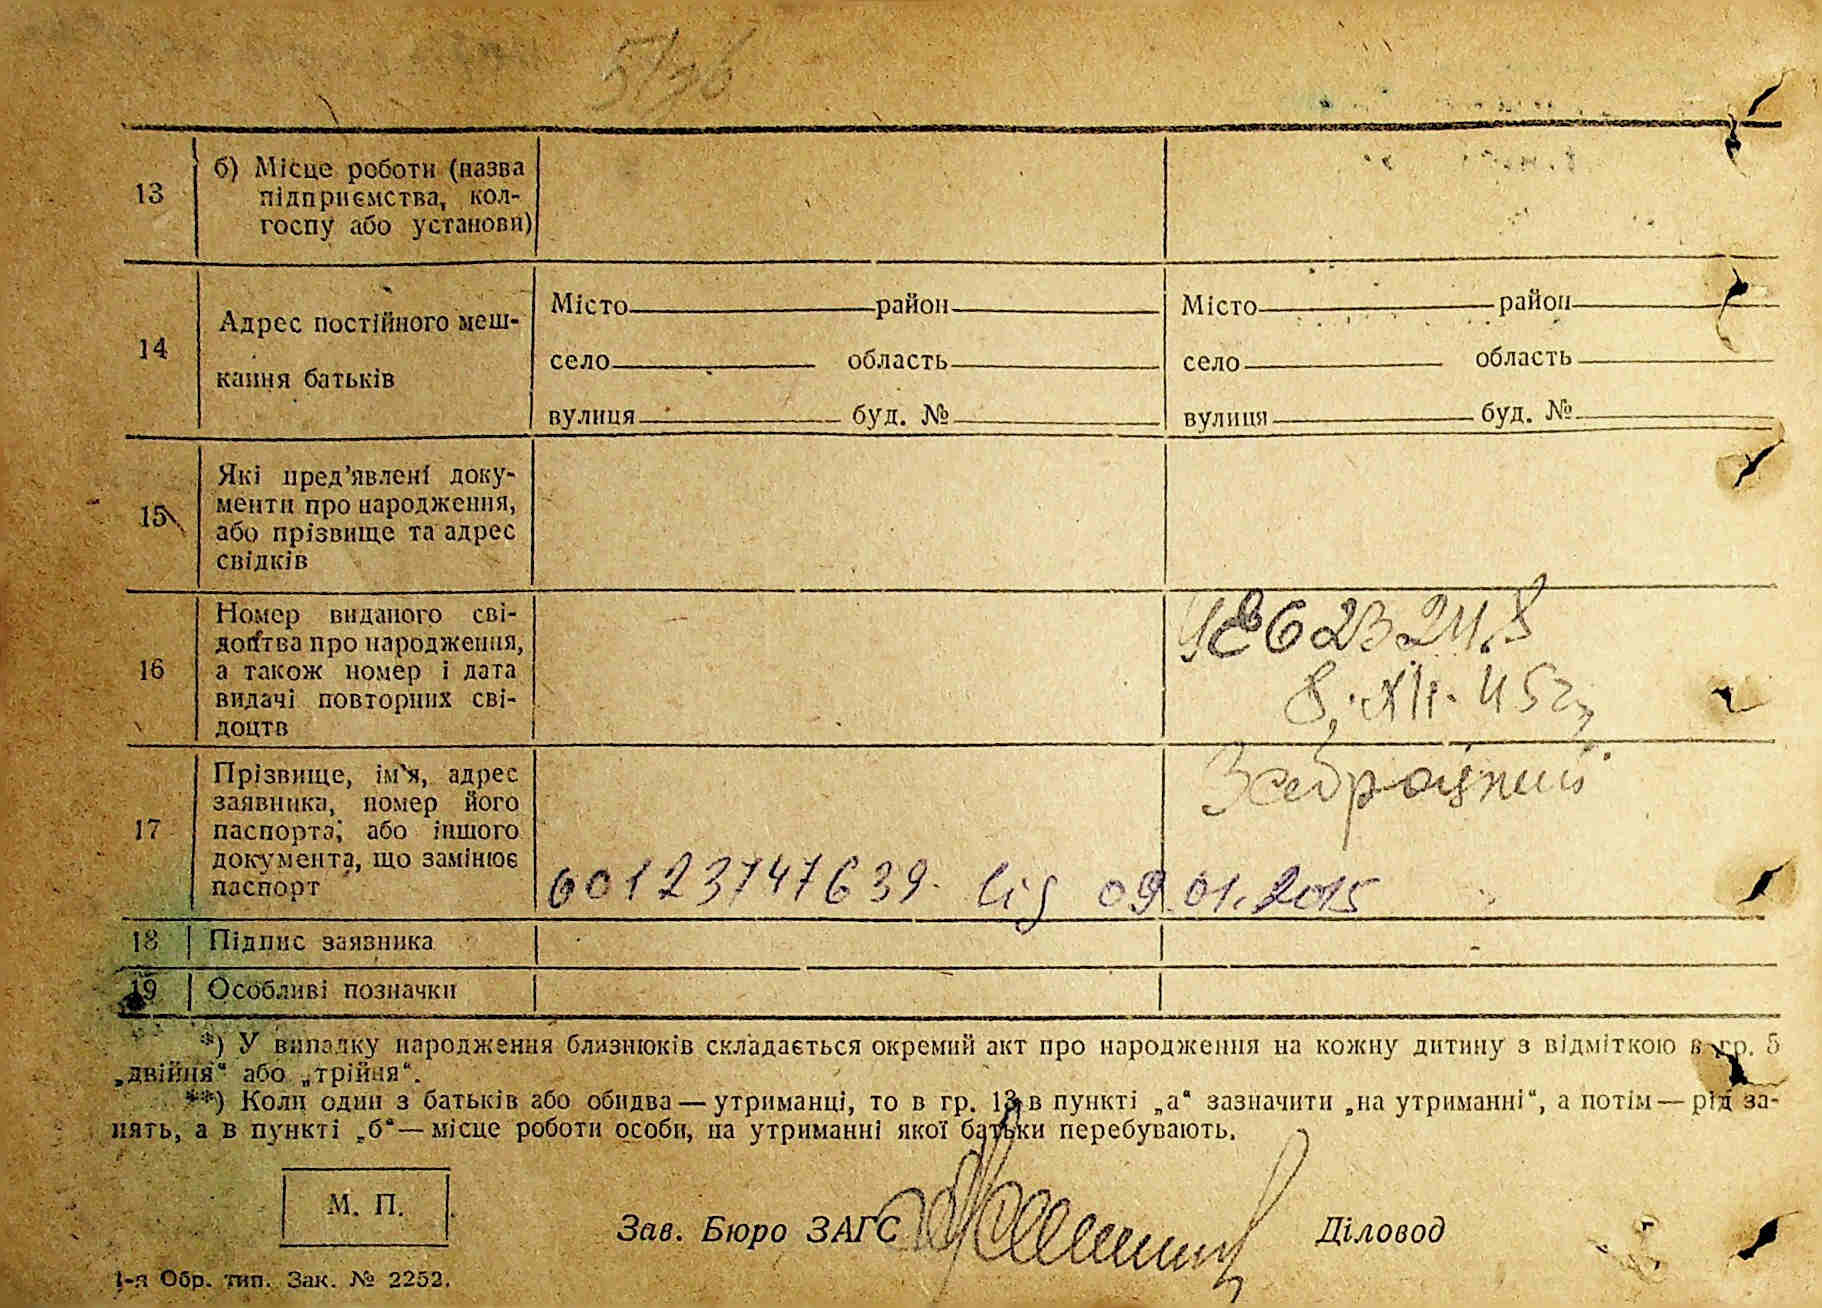 13
б) Місце роботи (назва
підприємства, кол-
госпу або установи)
14
Адрес постійного меш-
кання батьків
Місто район
село область
вулиця буд. №
Місто район
село область
вулиця буд. №
15
Які пред’явлені доку-
менти про народження,
або прізвище та адрес
свідків
16
Номер виданого сві-
доцтва про народження,
а також номер і дата
видачі повторних сві-
доцтв
8.XII.45г
17
Прізвище, ім’я, адрес
заявника, номер його
паспорта, або іншого
документа, що замінює
паспорт
Заброцкий
00123747639 від 09.01.2015
18 Підпис заявника
19 Особливі позначки
*) У випадку народження близнюків складається окремий акт про народження на кожну дитину з відміткою в гр. 5
„двійня“ або „трійня“.
**) Коли один з батьків або обидва — утриманці, то в гр. 13 в пункті „а“ зазначити „на утриманні“, а потім — рід за-
нять, а в пункті „б“ — місце роботи особи, на утриманні якої батьки перебувають.
М. П.
Зав. Бюро ЗАГС Діловод
1-я Обр. тип. Зак. № 2252.